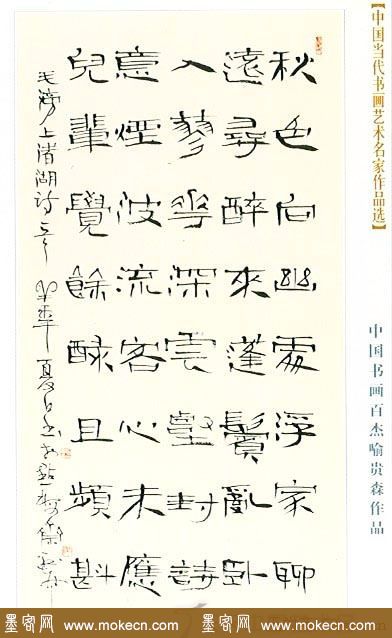 【中国当代书画艺术名家作品选】
中国书画百杰喻贵森作品
秋色向幽處浮家聊
遠尋醉來蓬鬢亂卧
入蓼花深雲壑封詩
意煙波流客心未應
兒輩覺餘醁且頻斟
毛滂上渚湖詩
墨客网 www.mokecn.com 墨客网 www.mokecn.com